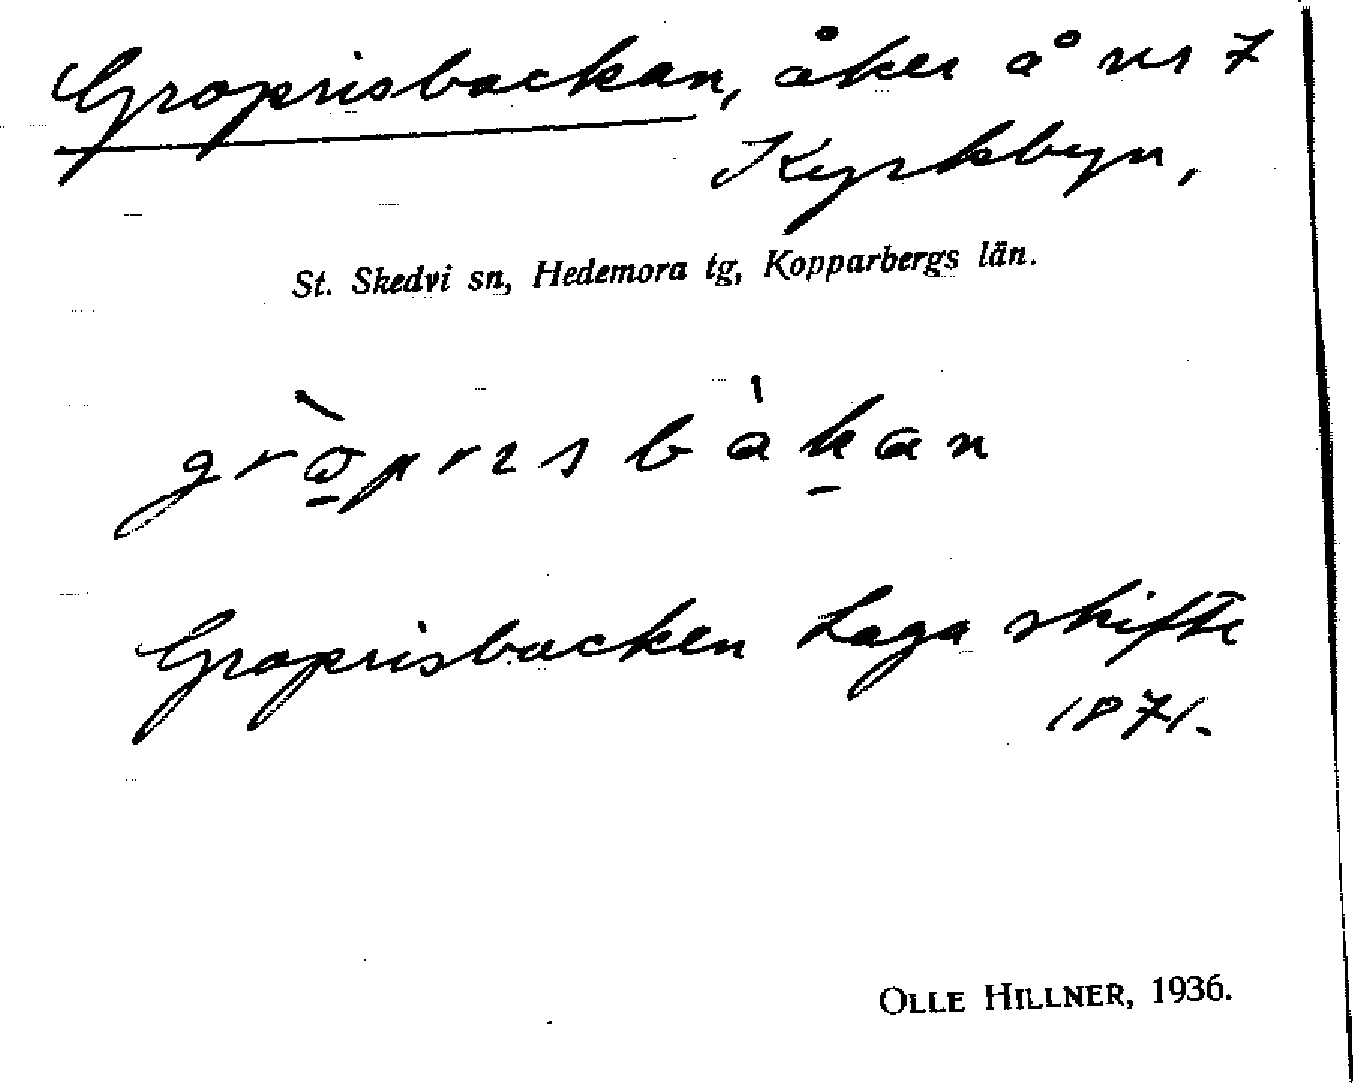 Groprisbackan, åker å nr 7
Kyrkbyn,
St. Skedvi sn, Hedemora tg, Kopparbergs län.
gròprɪsbàkan
Groprisbacken Laga skifte
1871.
OLLE HILLNER, 1936.